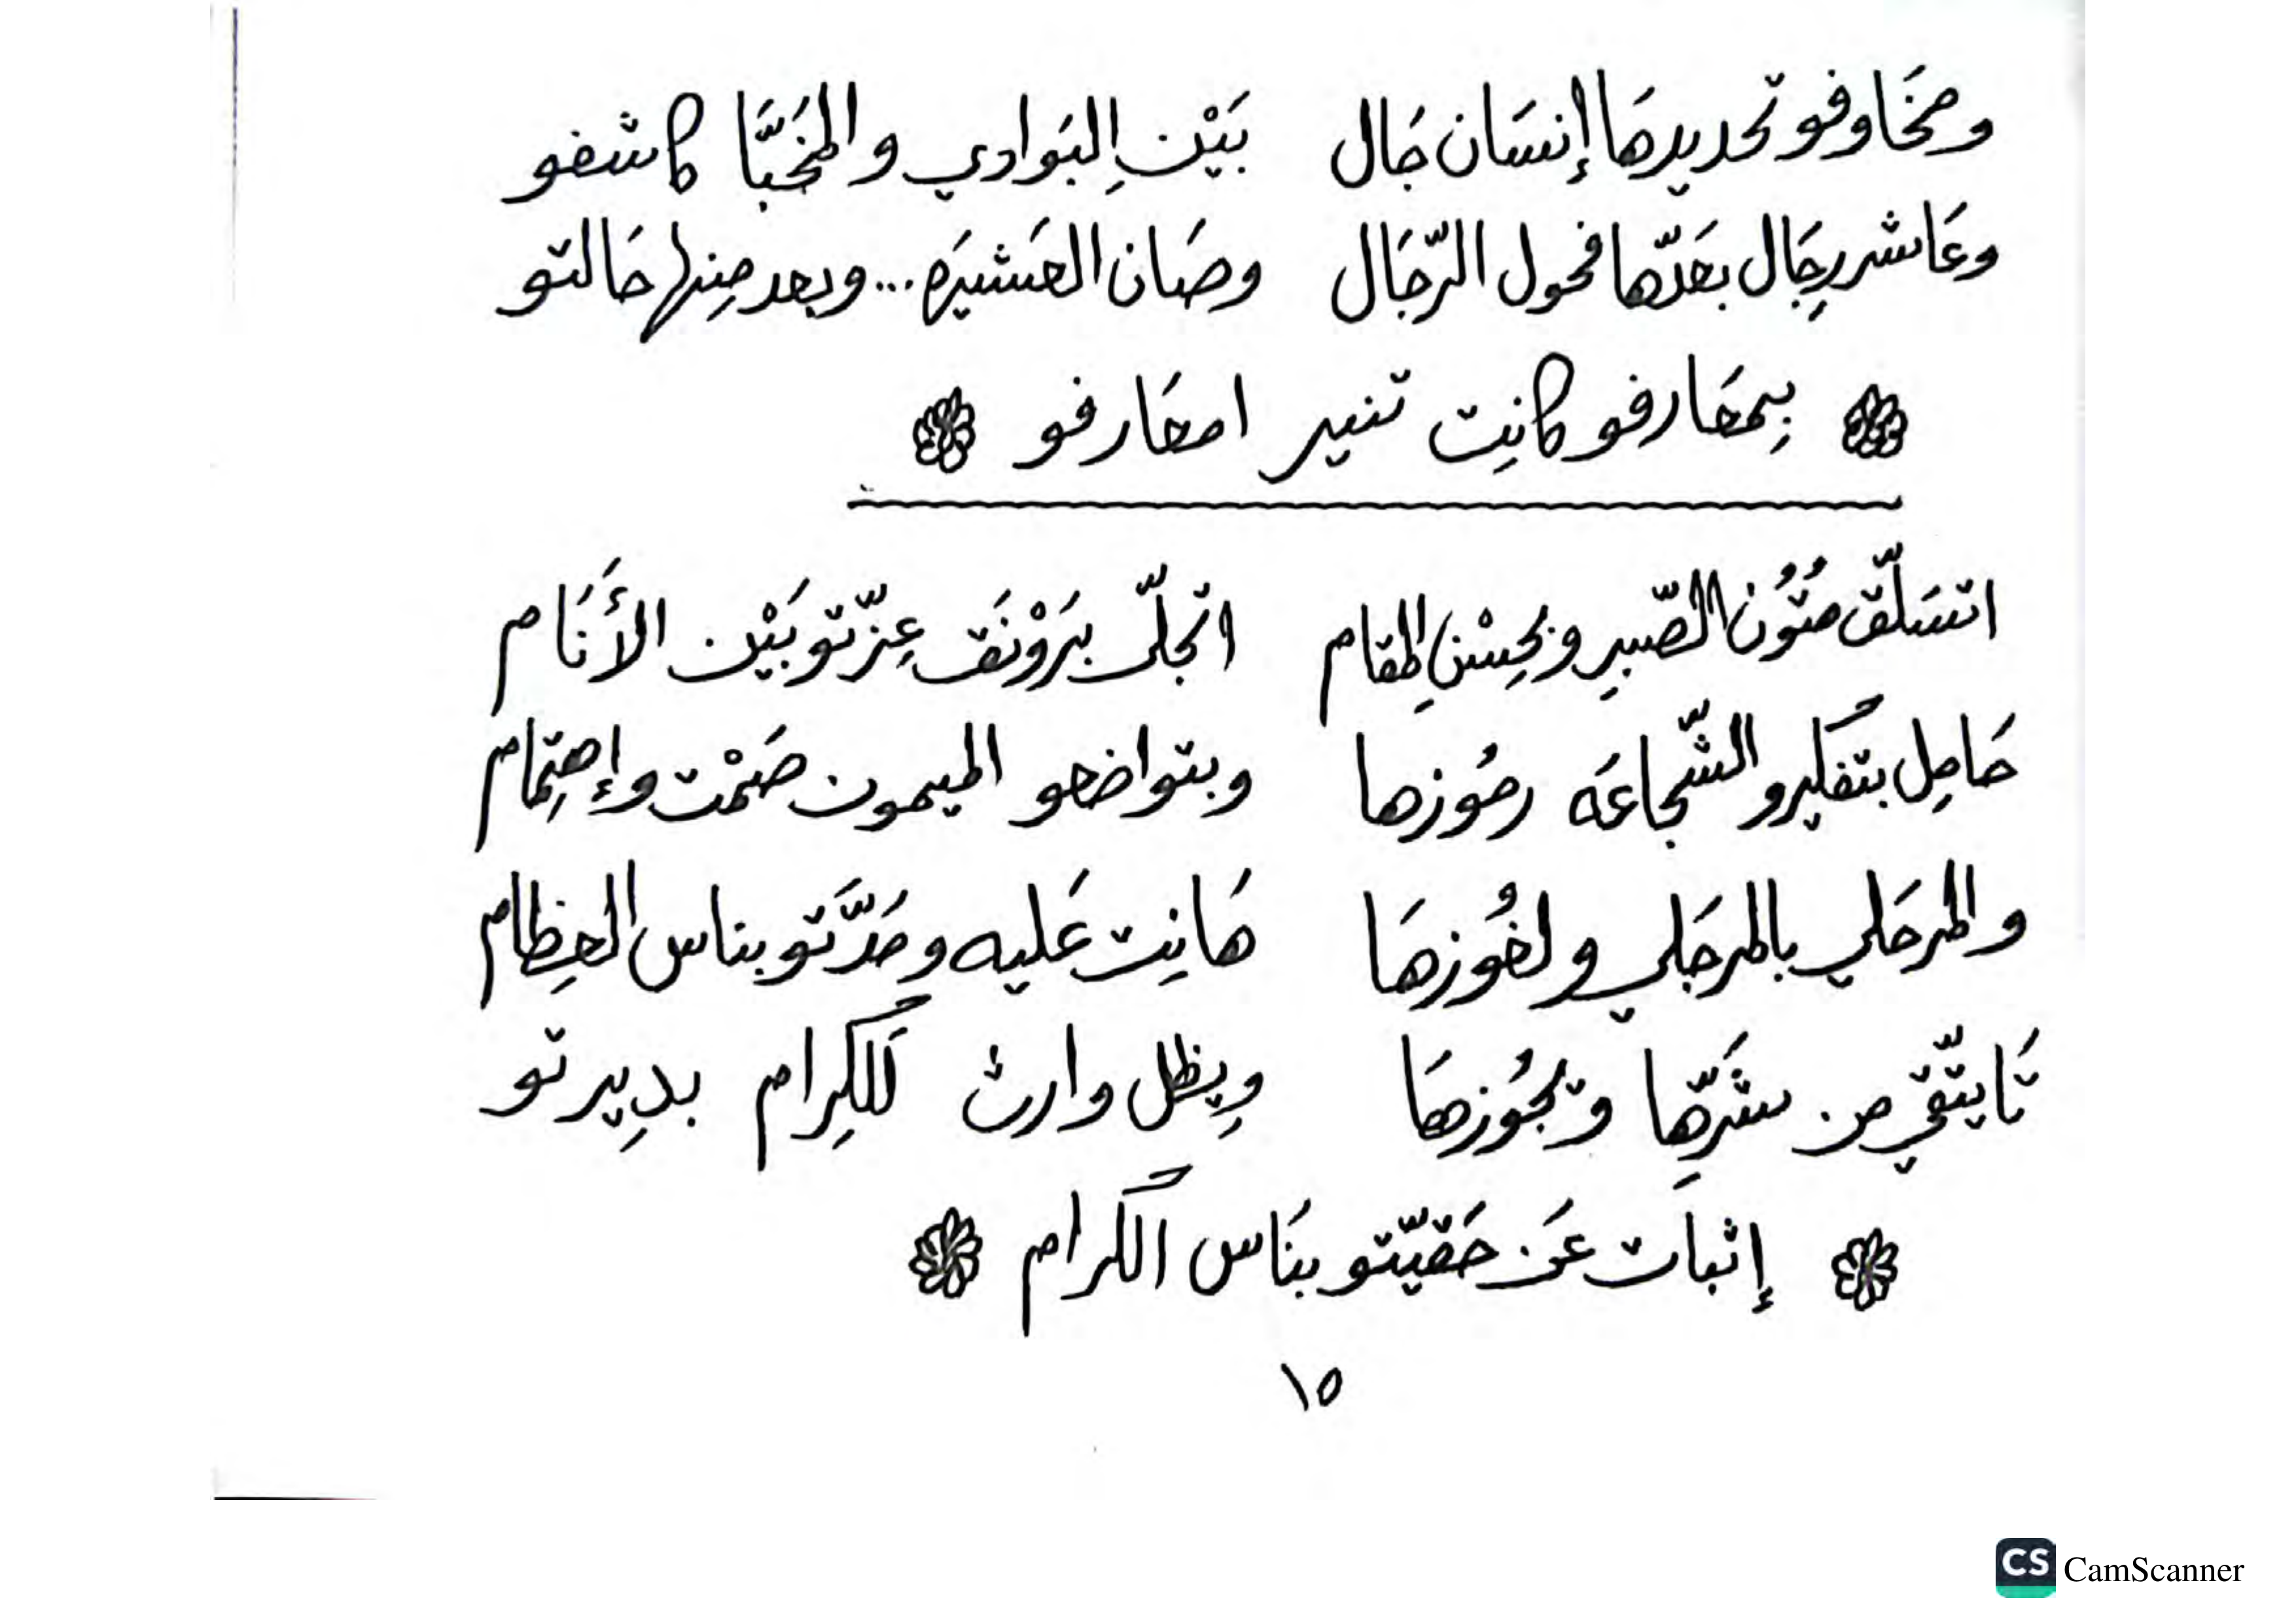 ومَخَاوفو تحديدهَا إنسَان جَال بَيْن اِلبَوادي والمخَبَّا كاشفو
وعَاشر رِجَال بعَدّها فحول الرّجَال وصَان العَشيرَه ... وبعد مِنها حَالتو
بِمعَارفو كانِت تنير امعَارفو
اتسَلّق متُون الصّبِر وبحِسْن اِلمقام اتجلّى برَوْنَق عِزّتو بَيْن الأَنَام
حَامِل بتفكَيرو الشّجاعَه رمُوزها وبتواضعو الميمون صَمْت وإهتِمام
والمرحَلي بالمرحَلي ولغُوزهَا هَانِت عَليه ومَدَّتو بناس العِظام
تَا يتّقي من شَرّهِا وتجُوزهَا وِيظل وارث لَلكِرام بدِيرتو
إثبات عَن حَقيّتو بنَاس الكَرام
١٥
CS CamScanner